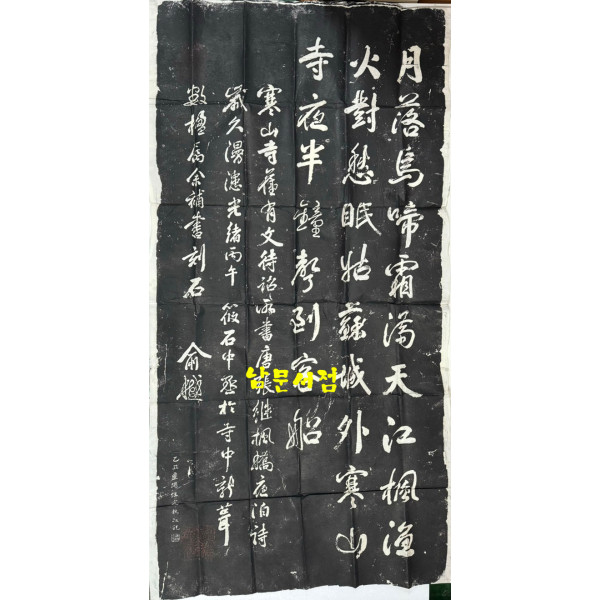 月落烏啼霜滿天江楓漁
火對愁眠姑蘇城外寒山
寺夜半鐘聲到客船
寒山寺舊有文待詔所書唐張繼楓橋夜泊詩
歲久漫漶光緒丙午筱石中丞於寺中新葺
數楹屬余補書刻石 俞樾
남문서점